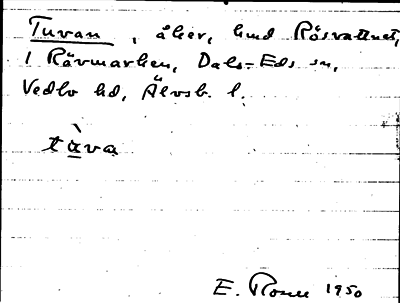 Tuvan, åker, hmd Rösvattnet,
i Rävmarken, Dals-Eds sn,
Vedbo hd, Älvsb. l.
tàva
E. 1950